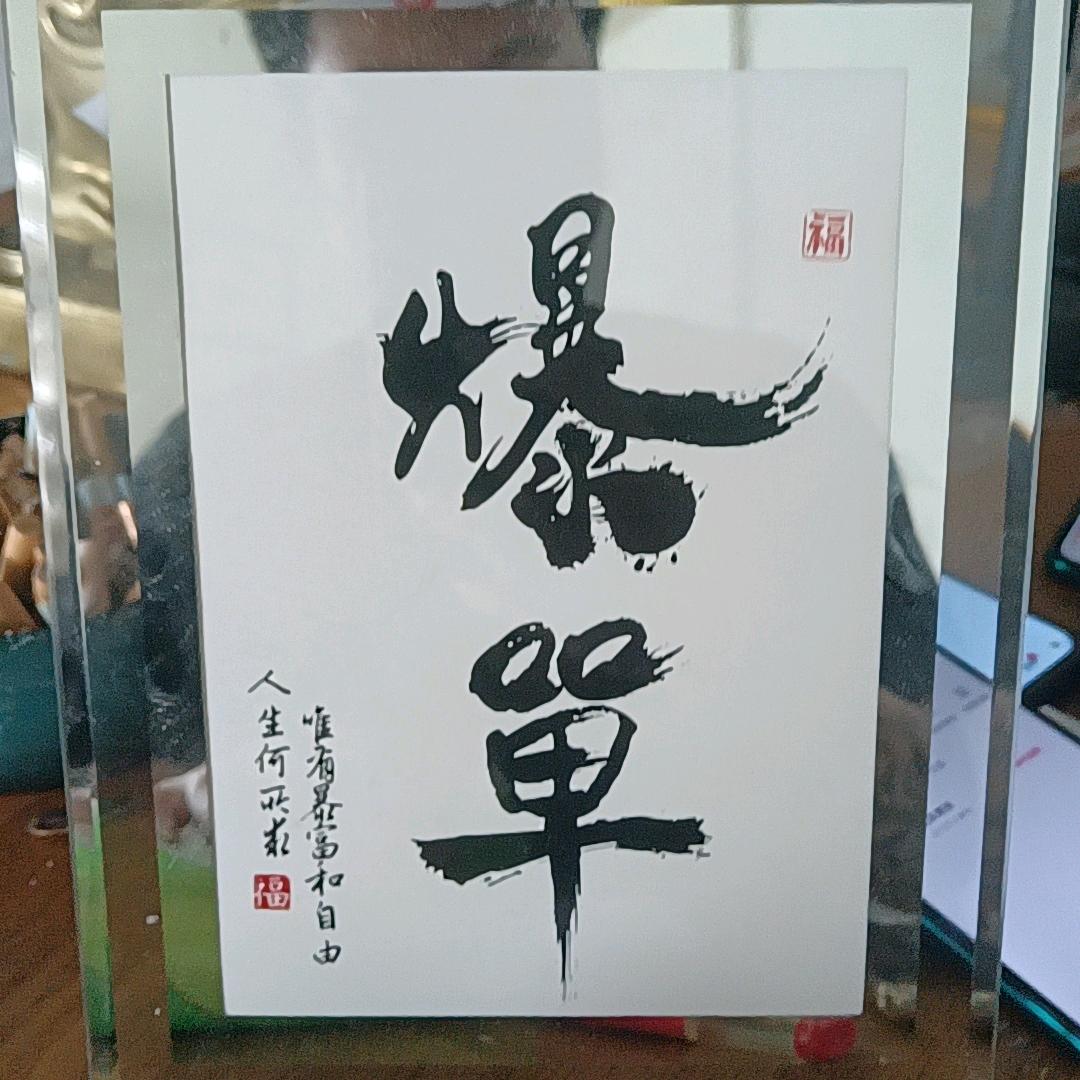 福
爆單
唯有暴富和自由
人生何所求
福